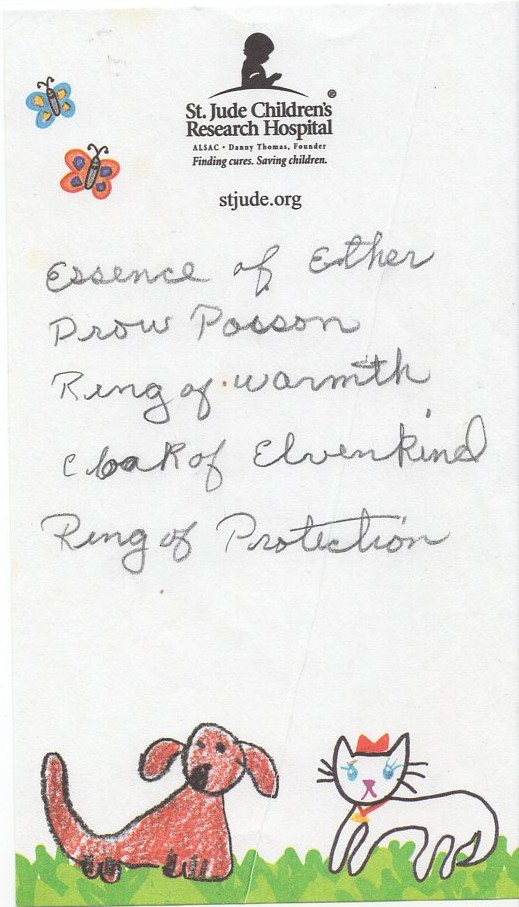 St. Jude Children's®
Research Hospital
ALSAC • Danny Thomas, Founder
Finding cures. Saving children.
stjude.org
Essence of Ether
Drow Posson
Ring of warmth
Cloak of Elvenkind
Ring of Protection